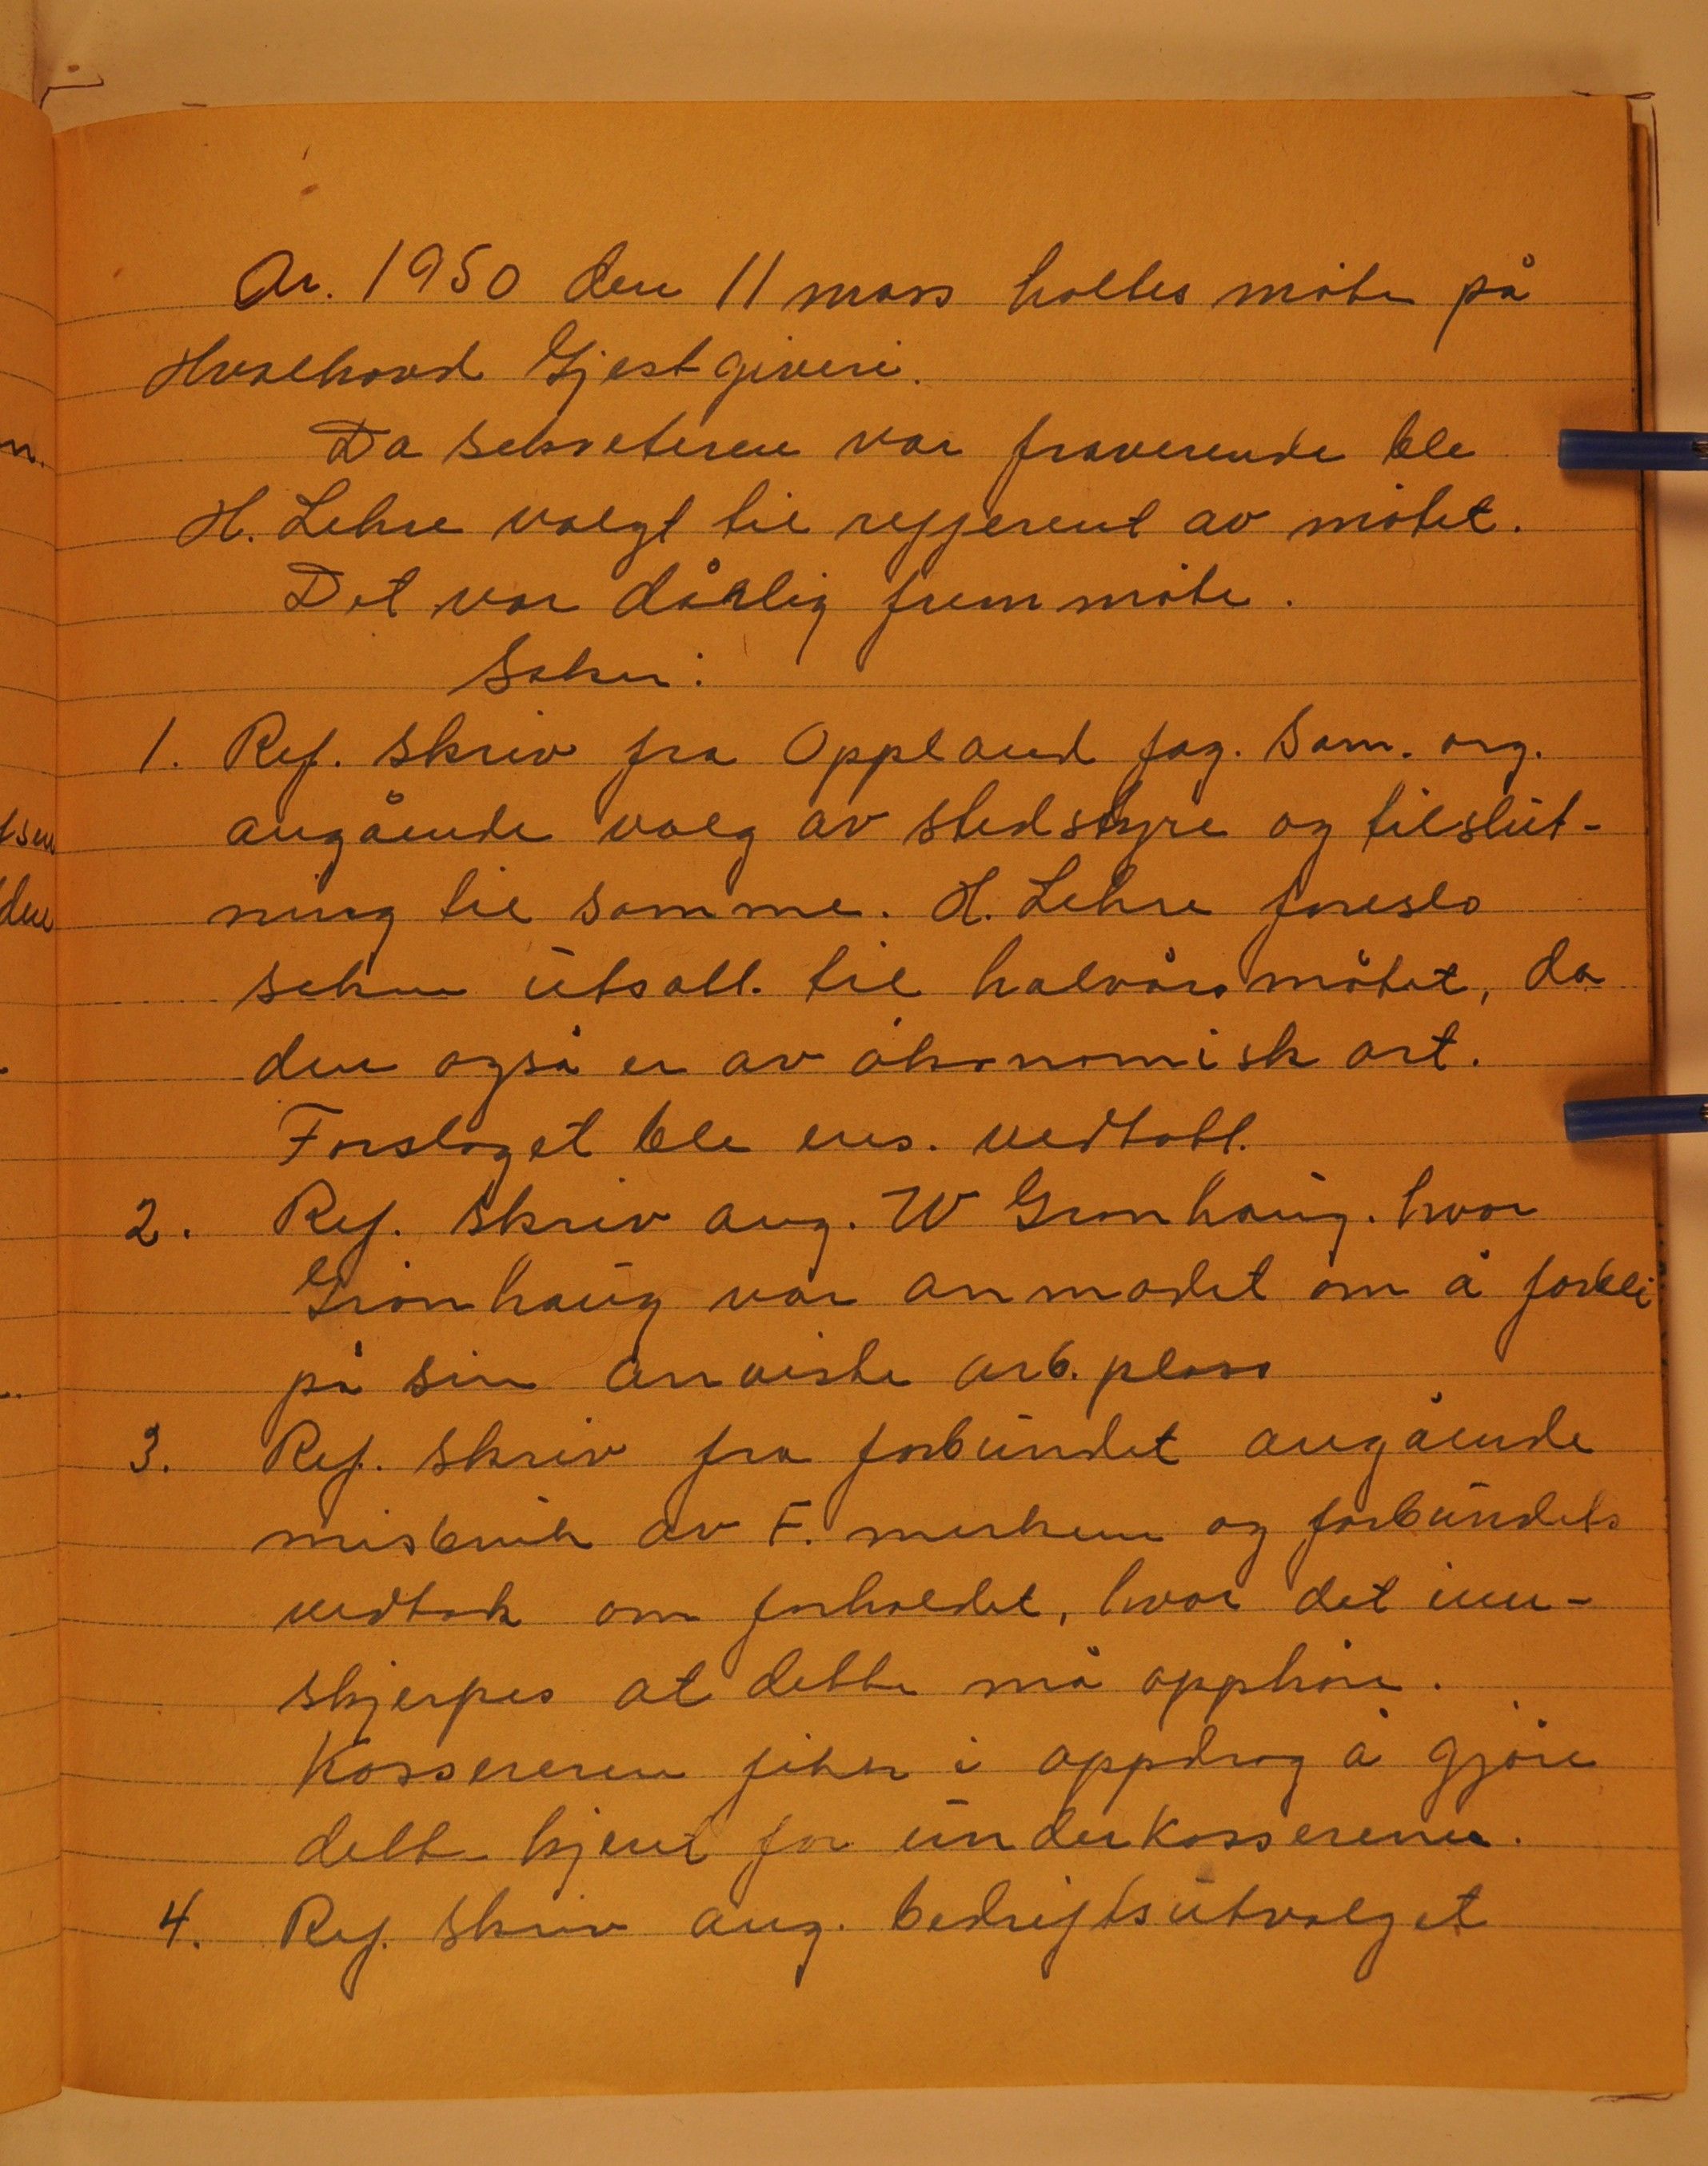 Ar. 1950 den 11 mars holtes møte på
Hvalhovd Gjestgiveri.
Da sekreteren var fraverende ble
H. Lehre valgt til refferent av møtet.
Det var dårlig fremmøte.
Saker:
1. Ref. skriv fra Oppland fag. Sam. org.
angående valg av stedstyre og tilslut-
ning til samme. H. Lehre foreslo
saken utsatt. til halvårsmøtet, da
den også er av økonomisk art.
Forslaget ble ens. vedtatt.
2. Ref. skriv ang. W Grønhaug. hvor
Grønhaug var anmodet om å forbli
på sin anviste arb. plass
3. Ref. skriv fra forbundet angående
misbruk av F. merkene og forbundets
vedtak om forholdet, hvor det inn-
skjerpes at dette må opphøre.
Kassereren fikk i oppdrag å gjøre
dette kjent for underkassererne.
4. Ref. skriv ang. bedriftsutvalget
n.
den